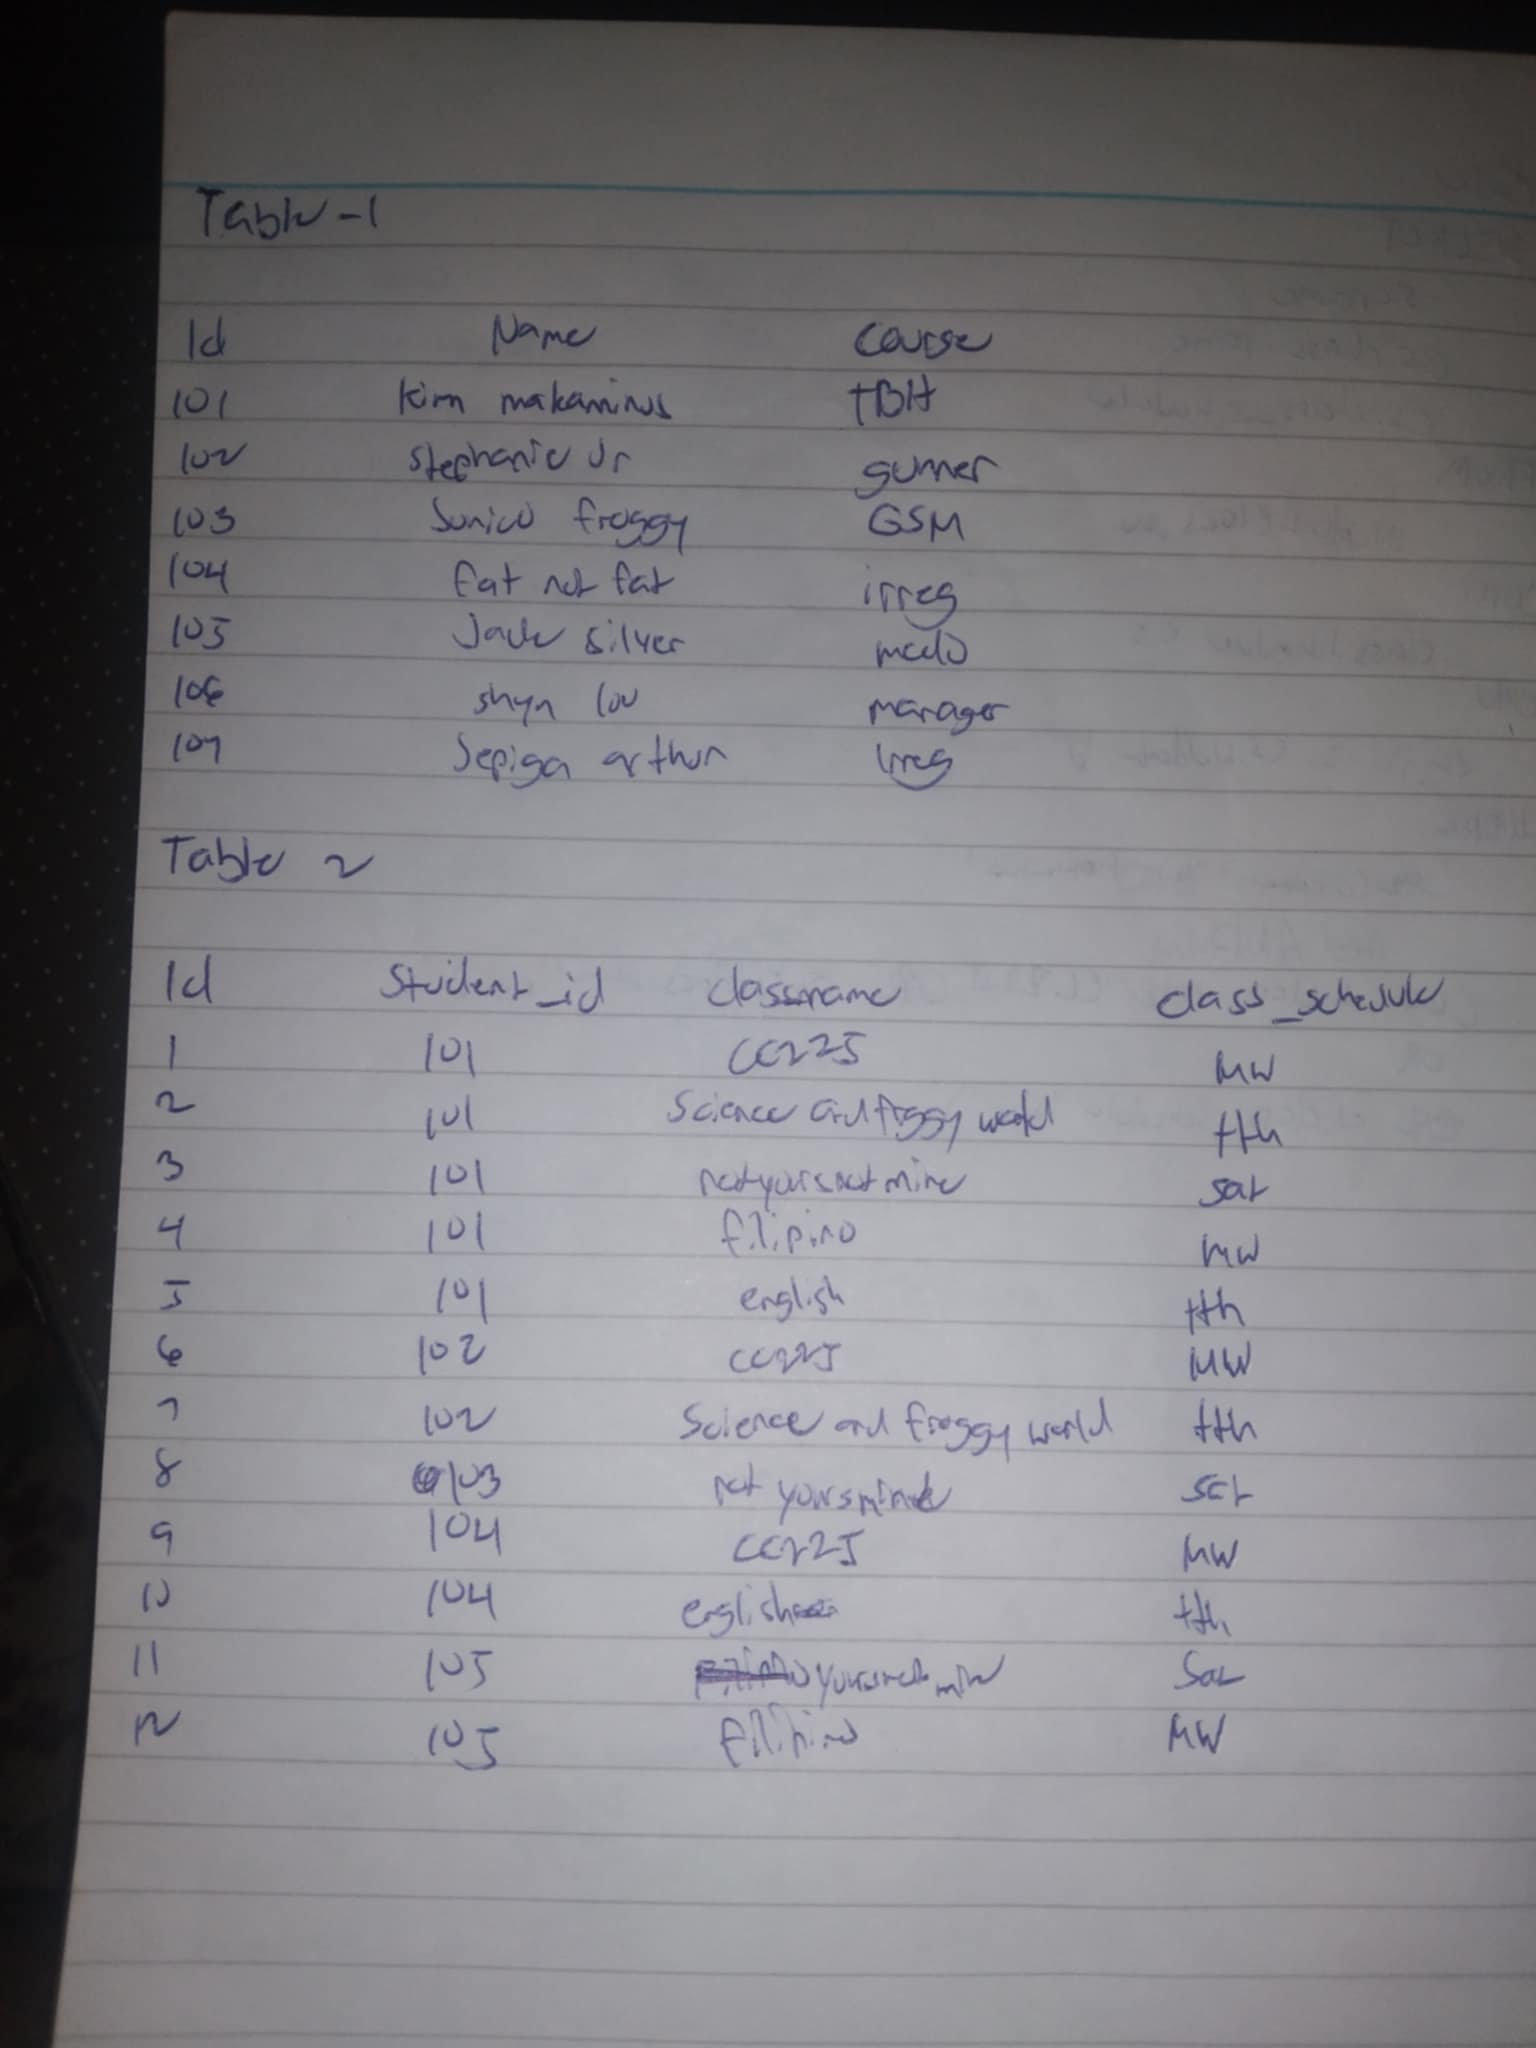 Table-1
Id Name Course
101 kim makaminus TBH
102 stephanie Jr gumer
103 Junico froggy GSM
104 fat not fat irreg
105 Jack silver mcdo
106 shyn lou manager
107 Jepiga arthur Irreg
Table 2
Id Student_id classname class_schedule
1 101 CC225 MW
2 101 Science and froggy world tth
3 101 notyoursnotmine sat
4 101 filipino MW
5 101 english tth
6 102 CC225 MW
7 102 Science and froggy world tth
8 103 not yoursmine sat
9 104 CC225 MW
10 104 english tth
11 105 yoursnotmine Sat
12 105 filipino MW